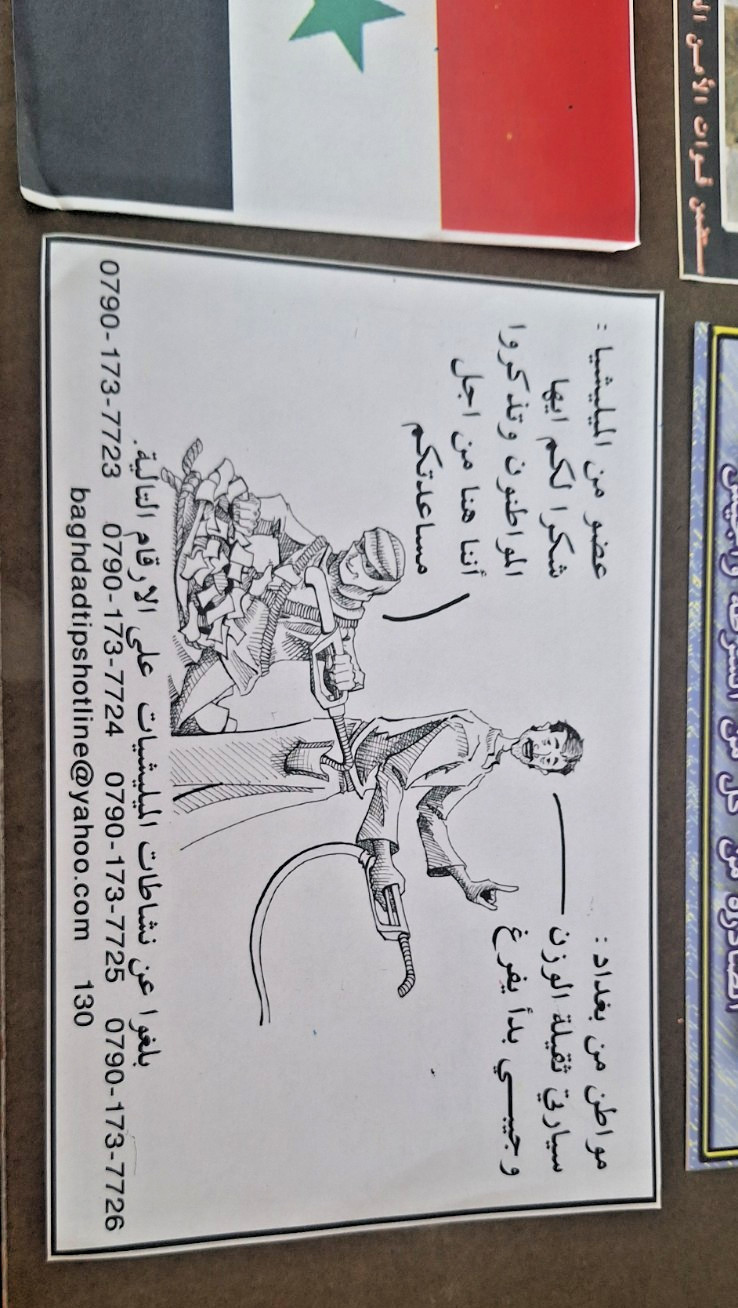 قوات الأمن
الصادرة من كل من الشرطة والجيش
مواطن من بغداد :
سيارتي ثقيلة الوزن
وجيبي بدأ يفرغ
عضو من الميليشيا :
شكرا لكم ايها
المواطنون وتذكروا
أننا هنا من اجل
مساعدتكم
بلغوا عن نشاطات الميليشيات على الارقام التالية.
0790-173-7723 0790-173-7724 0790-173-7725 0790-173-7726
baghdadtipshotline@yahoo.com 130